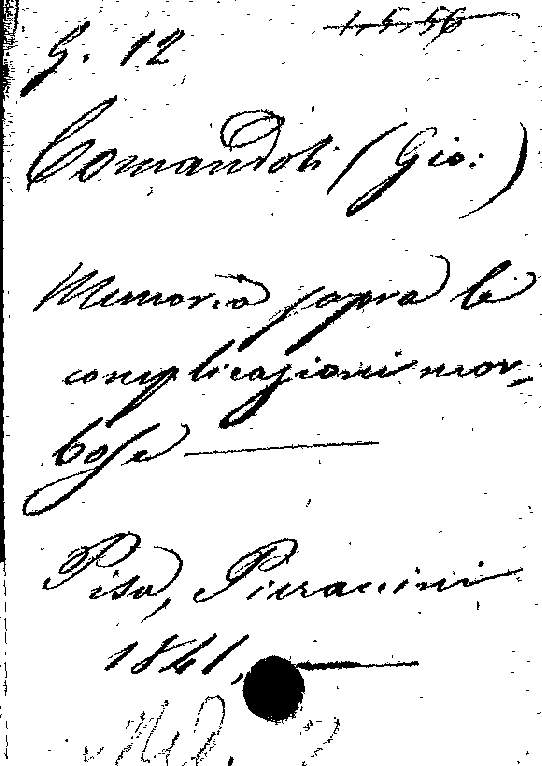 G. 12
1,5,56
Comandoli (Gio:)
Memoria sopra le
complicazioni mor-
bose
Pisa, Pieraccini
1841,
Med.